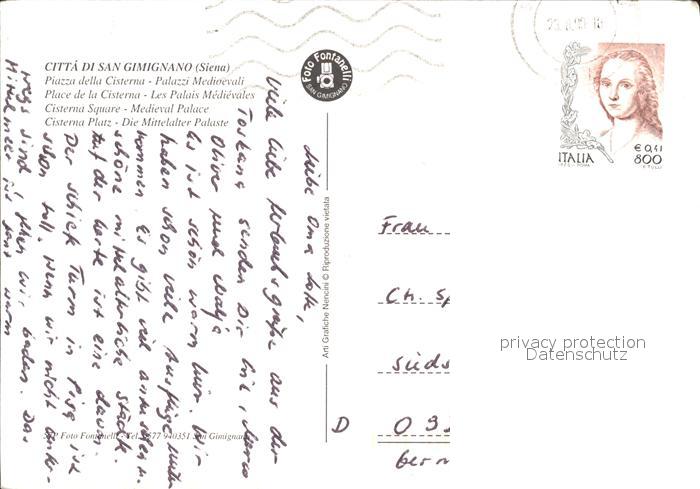 CITTÁ DI SAN GIMIGNANO (Siena)
Piazza della Cisterna - Palazzi Medioevali
Place de la Cisterna - Les Palais Médiévales
Cisterna Square - Medieval Palace
Cisterna Platz - Die Mittelalter Palaste
Foto Fontanelli
SAN GIMIGNANO
€ 0,41
ITALIA 800
Liebe Oma
viele liebe Urlaubsgrüße aus der
Toskana senden Dir
Oliver und
es ist schön warm hier. Wir
haben schon viele Ausflüge
kommen. Es gibt viel anzusehen.
schöne mittelalterliche Städte.
Auf der Karte ist eine davon.
Der schiefe Turm in Pisa ist
schon toll. Wenn wir nicht
sind, gehen wir baden. Das
Mittelmeer ist ganz warm
Arti Grafiche Nencini © Riproduzione vietata
Foto Fontanelli - Tel. 0577 940351 San Gimignano
Frau
Ch. Sp
Süds
D 03
Bern
privacy protection
Datenschutz